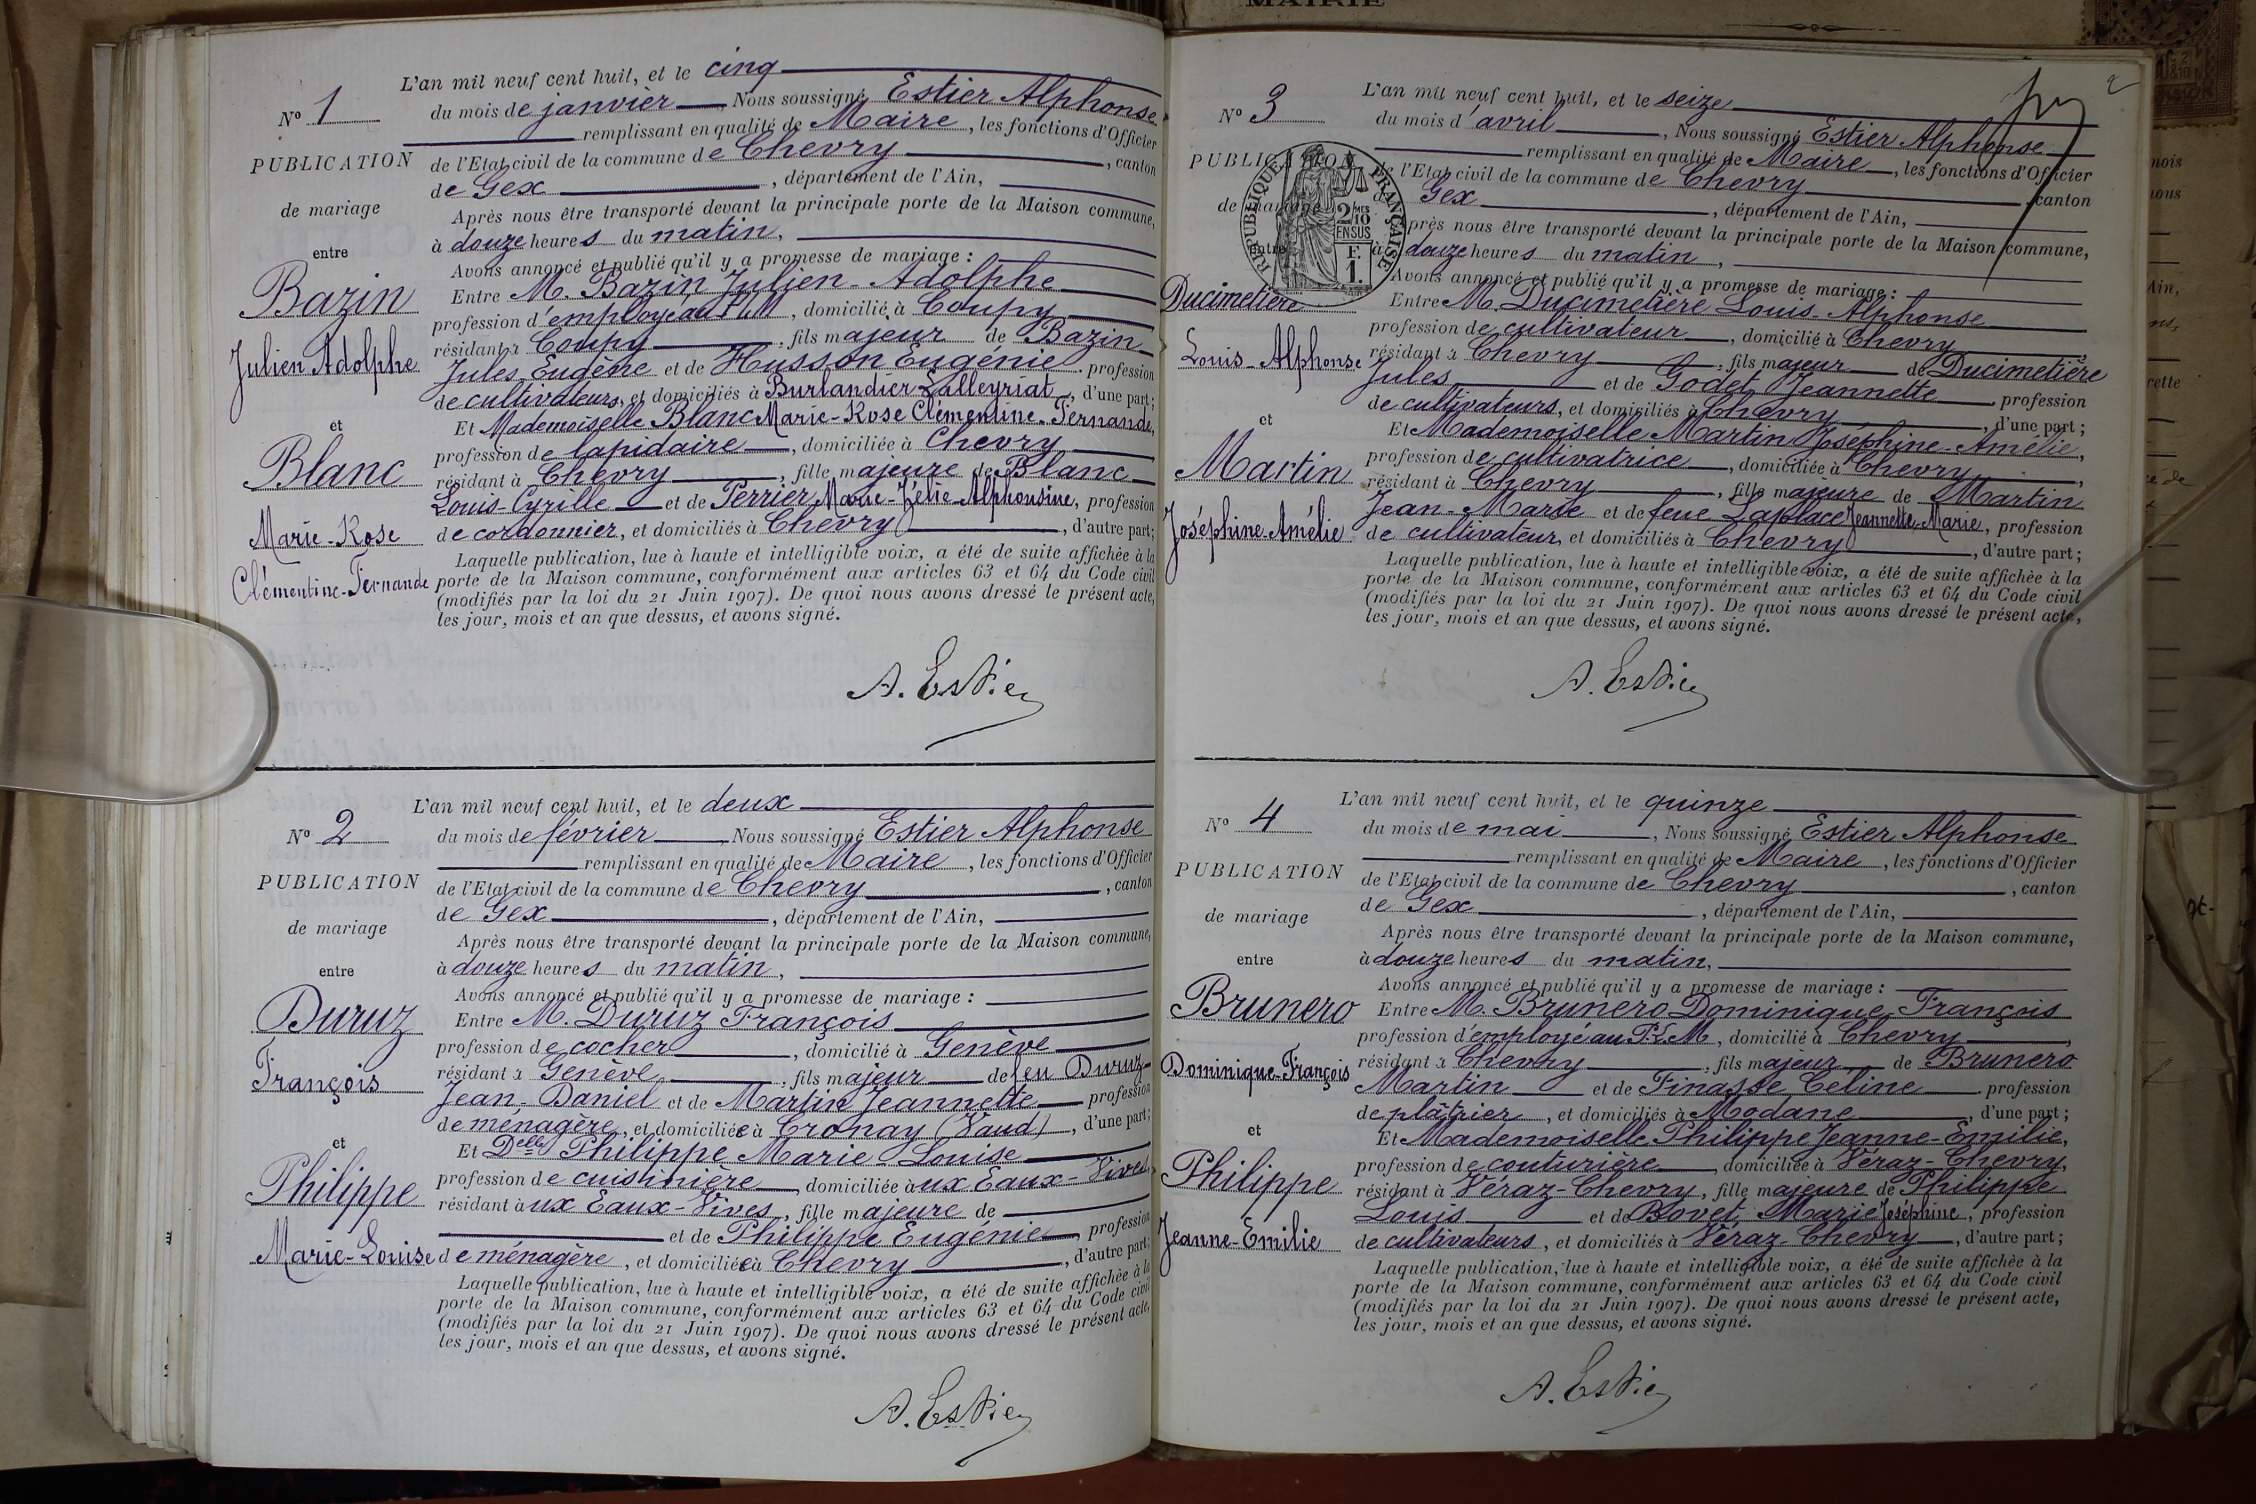 MAIRIE
L'an mil neuf cent huit, et le cinq
N° 1
du mois de janvier, Nous soussigné Estier Alphonse
remplissant en qualité de Maire, les fonctions d'Officier
PUBLICATION
de l'Etat civil de la commune de Chevry, canton
de Gex, département de l'Ain,
de mariage
Après nous être transporté devant la principale porte de la Maison commune,
à douze heures du matin,
entre
Avons annoncé et publié qu'il y a promesse de mariage :
Bazin
Entre M. Bazin Julien-Adolphe
profession d'employé au PLM, domicilié à Coupy
Julien Adolphe
résidant à Coupy, fils majeur de Bazin
Jules Eugène et de Husson Eugénie, profession
de cultivateurs, et domiciliés à Burlandier Lalleyriat, d'une part;
et
Et Mademoiselle Blanc Marie-Rose Clémentine-Fernande,
Blanc
profession de lapidaire, domiciliée à Chevry
résidant à Chevry, fille majeure de Blanc
Louis-Cyrille et de Perrier Marie-Zélie-Alphonsine, profession
Marie-Rose
de cordonnier, et domiciliés à Chevry, d'autre part;
Clémentine-Fernande
Laquelle publication, lue à haute et intelligible voix, a été de suite affichée à la
porte de la Maison commune, conformément aux articles 63 et 64 du Code civil
(modifiés par la loi du 21 Juin 1907). De quoi nous avons dressé le présent acte,
les jour, mois et an que dessus, et avons signé.
A. Estier
L'an mil neuf cent huit, et le deux
N° 2
du mois de février, Nous soussigné Estier Alphonse
remplissant en qualité de Maire, les fonctions d'Officier
PUBLICATION
de l'Etat civil de la commune de Chevry, canton
de Gex, département de l'Ain,
de mariage
Après nous être transporté devant la principale porte de la Maison commune,
entre
à douze heures du matin,
Avons annoncé et publié qu'il y a promesse de mariage :
Duruz
Entre M. Duruz François
profession de cocher, domicilié à Genève
François
résidant à Genève, fils majeur de feu Duruz
Jean-Daniel et de Martin Jeannette profession
de ménagère, et domiciliée à Cronay (Vaud), d'une part;
et
Et Delle Philippe Marie-Louise
Philippe
profession de cuisinière, domiciliée aux Eaux-Vives
résidant aux Eaux-Vives, fille majeure de
et de Philippe Eugénie, profession
Marie-Louise
de ménagère, et domiciliée à Chevry, d'autre part;
Laquelle publication, lue à haute et intelligible voix, a été de suite affichée à la
porte de la Maison commune, conformément aux articles 63 et 64 du Code civil
(modifiés par la loi du 21 Juin 1907). De quoi nous avons dressé le présent acte,
les jour, mois et an que dessus, et avons signé.
A. Estier
2
L'an mil neuf cent huit, et le seize
N° 3
du mois d'avril, Nous soussigné Estier Alphonse
remplissant en qualité de Maire, les fonctions d'Officier
PUBLICATION
de l'Etat civil de la commune de Chevry, canton
de Gex, département de l'Ain,
de mariage
RÉPUBLIQUE FRANÇAISE
2/10 MES
EN SUS
F.
1.
Après nous être transporté devant la principale porte de la Maison commune,
entre
à douze heures du matin,
Avons annoncé et publié qu'il y a promesse de mariage :
Ducimetière
Entre M. Ducimetière Louis-Alphonse
profession de cultivateur, domicilié à Chevry
Louis-Alphonse
résidant à Chevry, fils majeur de Ducimetière
Jules et de Godet Jeannette profession
de cultivateurs, et domiciliés à Chevry, d'une part;
et
Et Mademoiselle Martin Joséphine-Amélie,
Martin
profession de cultivatrice, domiciliée à Chevry
résidant à Chevry, fille majeure de Martin
Jean-Marie et de feue Laplace Jeannette-Marie, profession
Joséphine-Amélie
de cultivateur, et domiciliés à Chevry, d'autre part;
Laquelle publication, lue à haute et intelligible voix, a été de suite affichée à la
porte de la Maison commune, conformément aux articles 63 et 64 du Code civil
(modifiés par la loi du 21 Juin 1907). De quoi nous avons dressé le présent acte,
les jour, mois et an que dessus, et avons signé.
A. Estier
L'an mil neuf cent huit, et le quinze
N° 4
du mois de mai, Nous soussigné Estier Alphonse
remplissant en qualité de Maire, les fonctions d'Officier
PUBLICATION
de l'Etat civil de la commune de Chevry, canton
de Gex, département de l'Ain,
de mariage
Après nous être transporté devant la principale porte de la Maison commune,
entre
à douze heures du matin,
Avons annoncé et publié qu'il y a promesse de mariage :
Brunero
Entre M. Brunero Dominique François
profession d'employé au P.L.M, domicilié à Chevry
Dominique-François
résidant à Chevry, fils majeur de Brunero
Martin et de Finasse Céline profession
de plâtrier, et domiciliés à Modane, d'une part;
et
Et Mademoiselle Philippe Jeanne-Emilie,
Philippe
profession de couturière, domiciliée à Véraz-Chevry,
résidant à Véraz-Chevry, fille majeure de Philippe
Louis et de Bovet Marie Joséphine, profession
Jeanne-Emilie
de cultivateurs, et domiciliés à Véraz-Chevry, d'autre part;
Laquelle publication, lue à haute et intelligible voix, a été de suite affichée à la
porte de la Maison commune, conformément aux articles 63 et 64 du Code civil
(modifiés par la loi du 21 Juin 1907). De quoi nous avons dressé le présent acte,
les jour, mois et an que dessus, et avons signé.
A. Estier